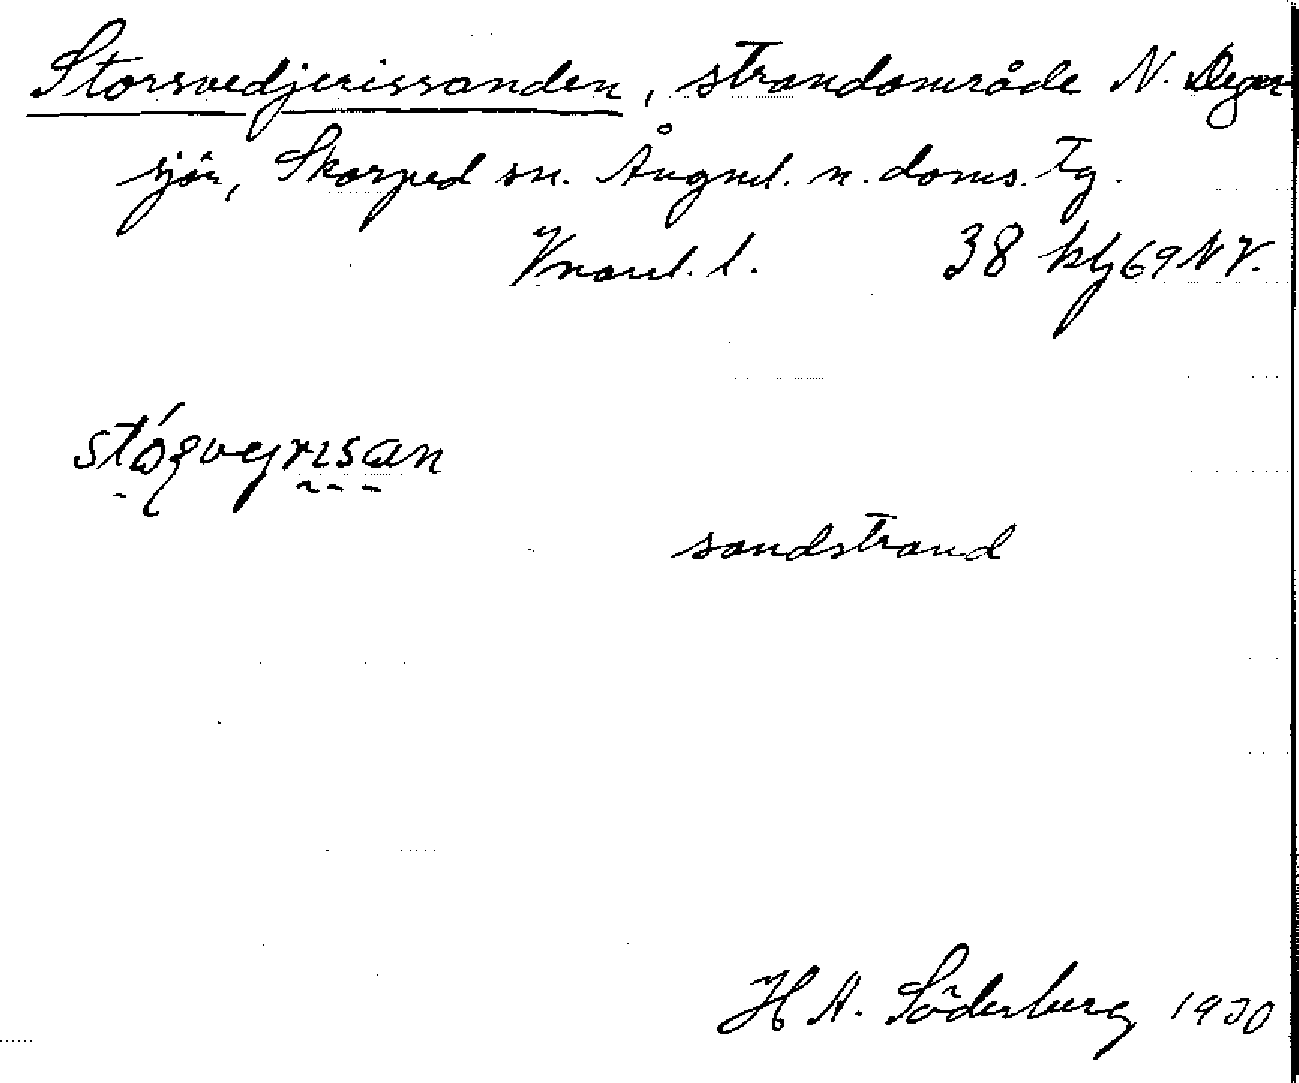 Storsvedjerissanden, strandområde N. Deger-
sjön, Skorped sn. Ångml. n. doms. tg.
Vnorrl. l. 38 klg 69 NV.
sandstrand
H A. Söderberg 1930